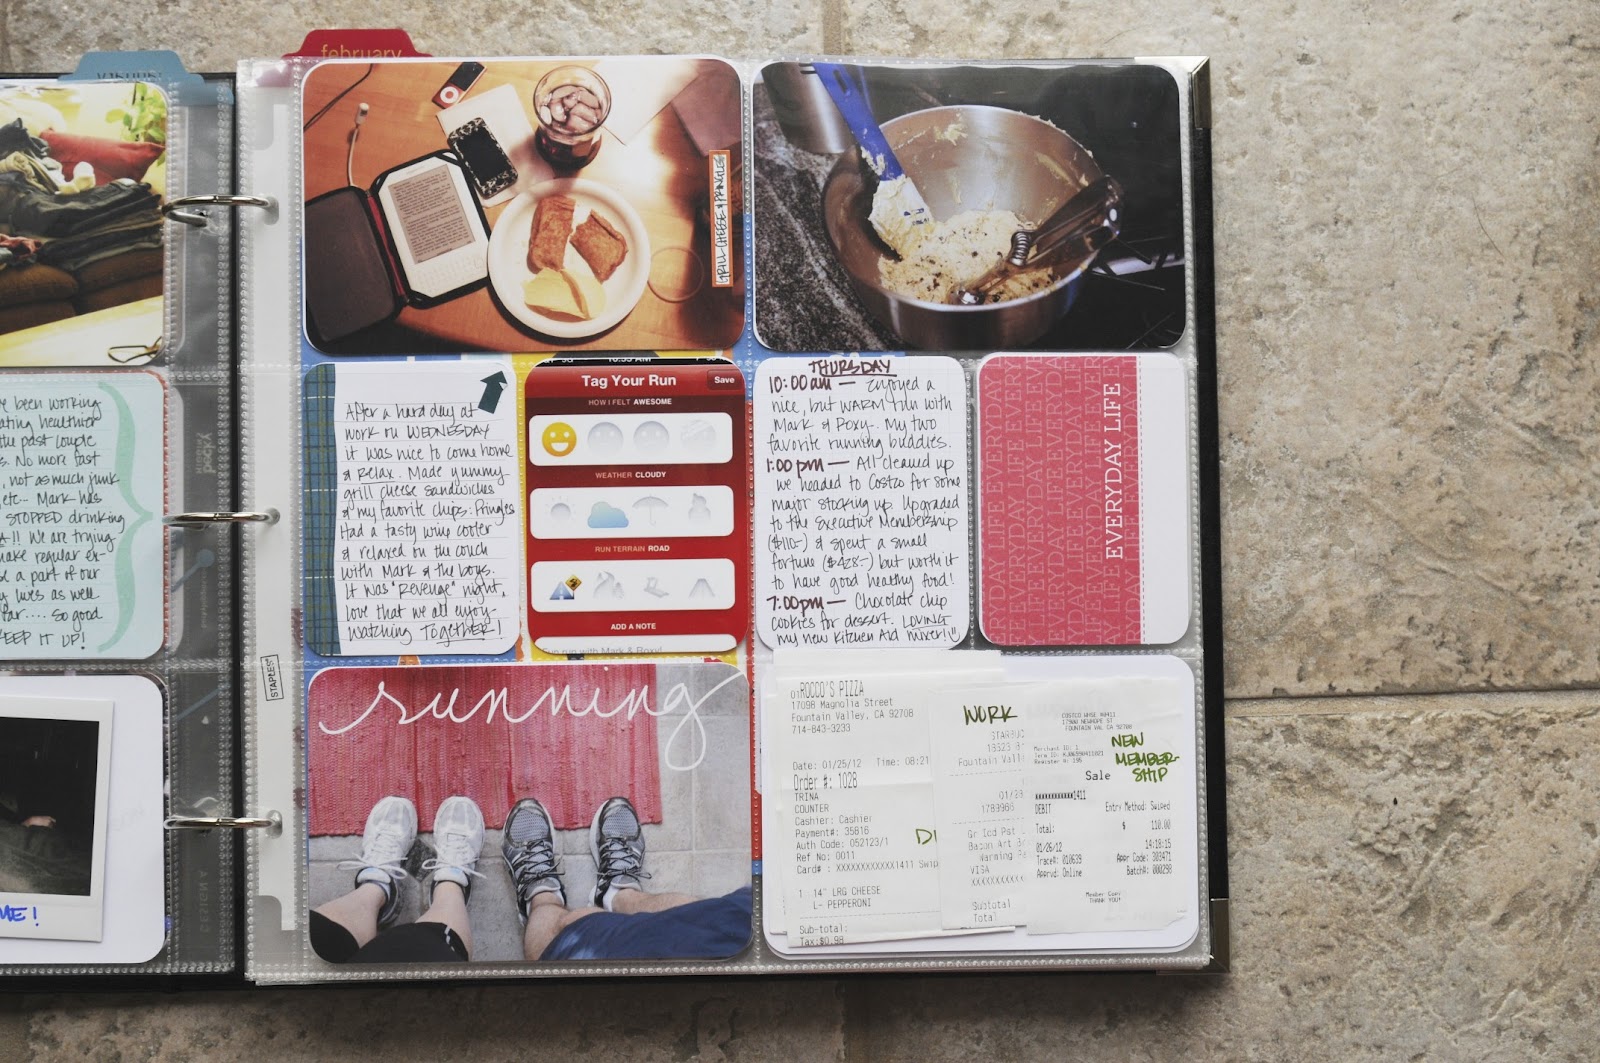 february
GRILL CHEESE & PRINGLES
've been working
ating healthier
the past couple
s. No more fast
, not as much junk
, etc... Mark has
STOPPED drinking
A!! We are trying
make regular ex-
se a part of our
y lives as well
far.... so good
KEEP IT UP!
ME!
STAPLES
After a hard day at
work on WEDNESDAY
it was nice to come home
& relax. Made yummy
grill cheese sandwiches
& my favorite chips: Pringles
Had a tasty wine cooler
& relaxed on the couch
with Mark & the boys.
It was "Revenge" night,
love that we all enjoy
watching TOGETHER!
10:35 AM
Tag Your Run
Save
HOW I FELT AWESOME
WEATHER CLOUDY
RUN TERRAIN ROAD
ADD A NOTE
Fun run with Mark & Roxy!
THURSDAY
10:00 am — Enjoyed a
nice, but WARM run with
Mark & Roxy. My two
favorite running buddies.
1:00 pm — All cleaned up
we headed to Costco for some
major stocking up. Upgraded
to the Executive Membership
($110-) & spent a small
fortune ($428-) but worth it
to have good healthy food!
7:00 pm — Chocolate chip
cookies for dessert. LOVING
my new Kitchen Aid mixer!
EVERYDAY LIFE
running
01ROCCO'S PIZZA
17098 Magnolia Street
Fountain Valley, CA 92708
714-843-3233
Date: 01/25/12 Time: 08:21
Order #: 1028
TRINA
COUNTER
Cashier: Cashier
Payment#: 35816
Auth Code: 052123/1
Ref No: 0011
Card# : XXXXXXXXXXXX1411 Swip
1 14" LRG CHEESE
L- PEPPERONI
Sub-total:
Tax:$0.98
DI
WORK
STARBUC
Fountain Vall
Gr Icd Pst
Bacon Art
Warming Pa
VISA
Subtotal
Total
COSTCO WHSE #0411
17900 NEWHOPE ST
FOUNTAIN VAL CA 92708
Merchant ID: 1
Register #: 195
NEW
MEMBER-
SHIP
Sale
XXXXXXXXXXXX1411
DEBIT Entry Method: Swiped
Total: $ 110.00
01/26/12 14:18:15
Trace#: 010639 Appr Code: 303471
Apprvd: Online Batch#: 000290
Member Copy
THANK YOU!